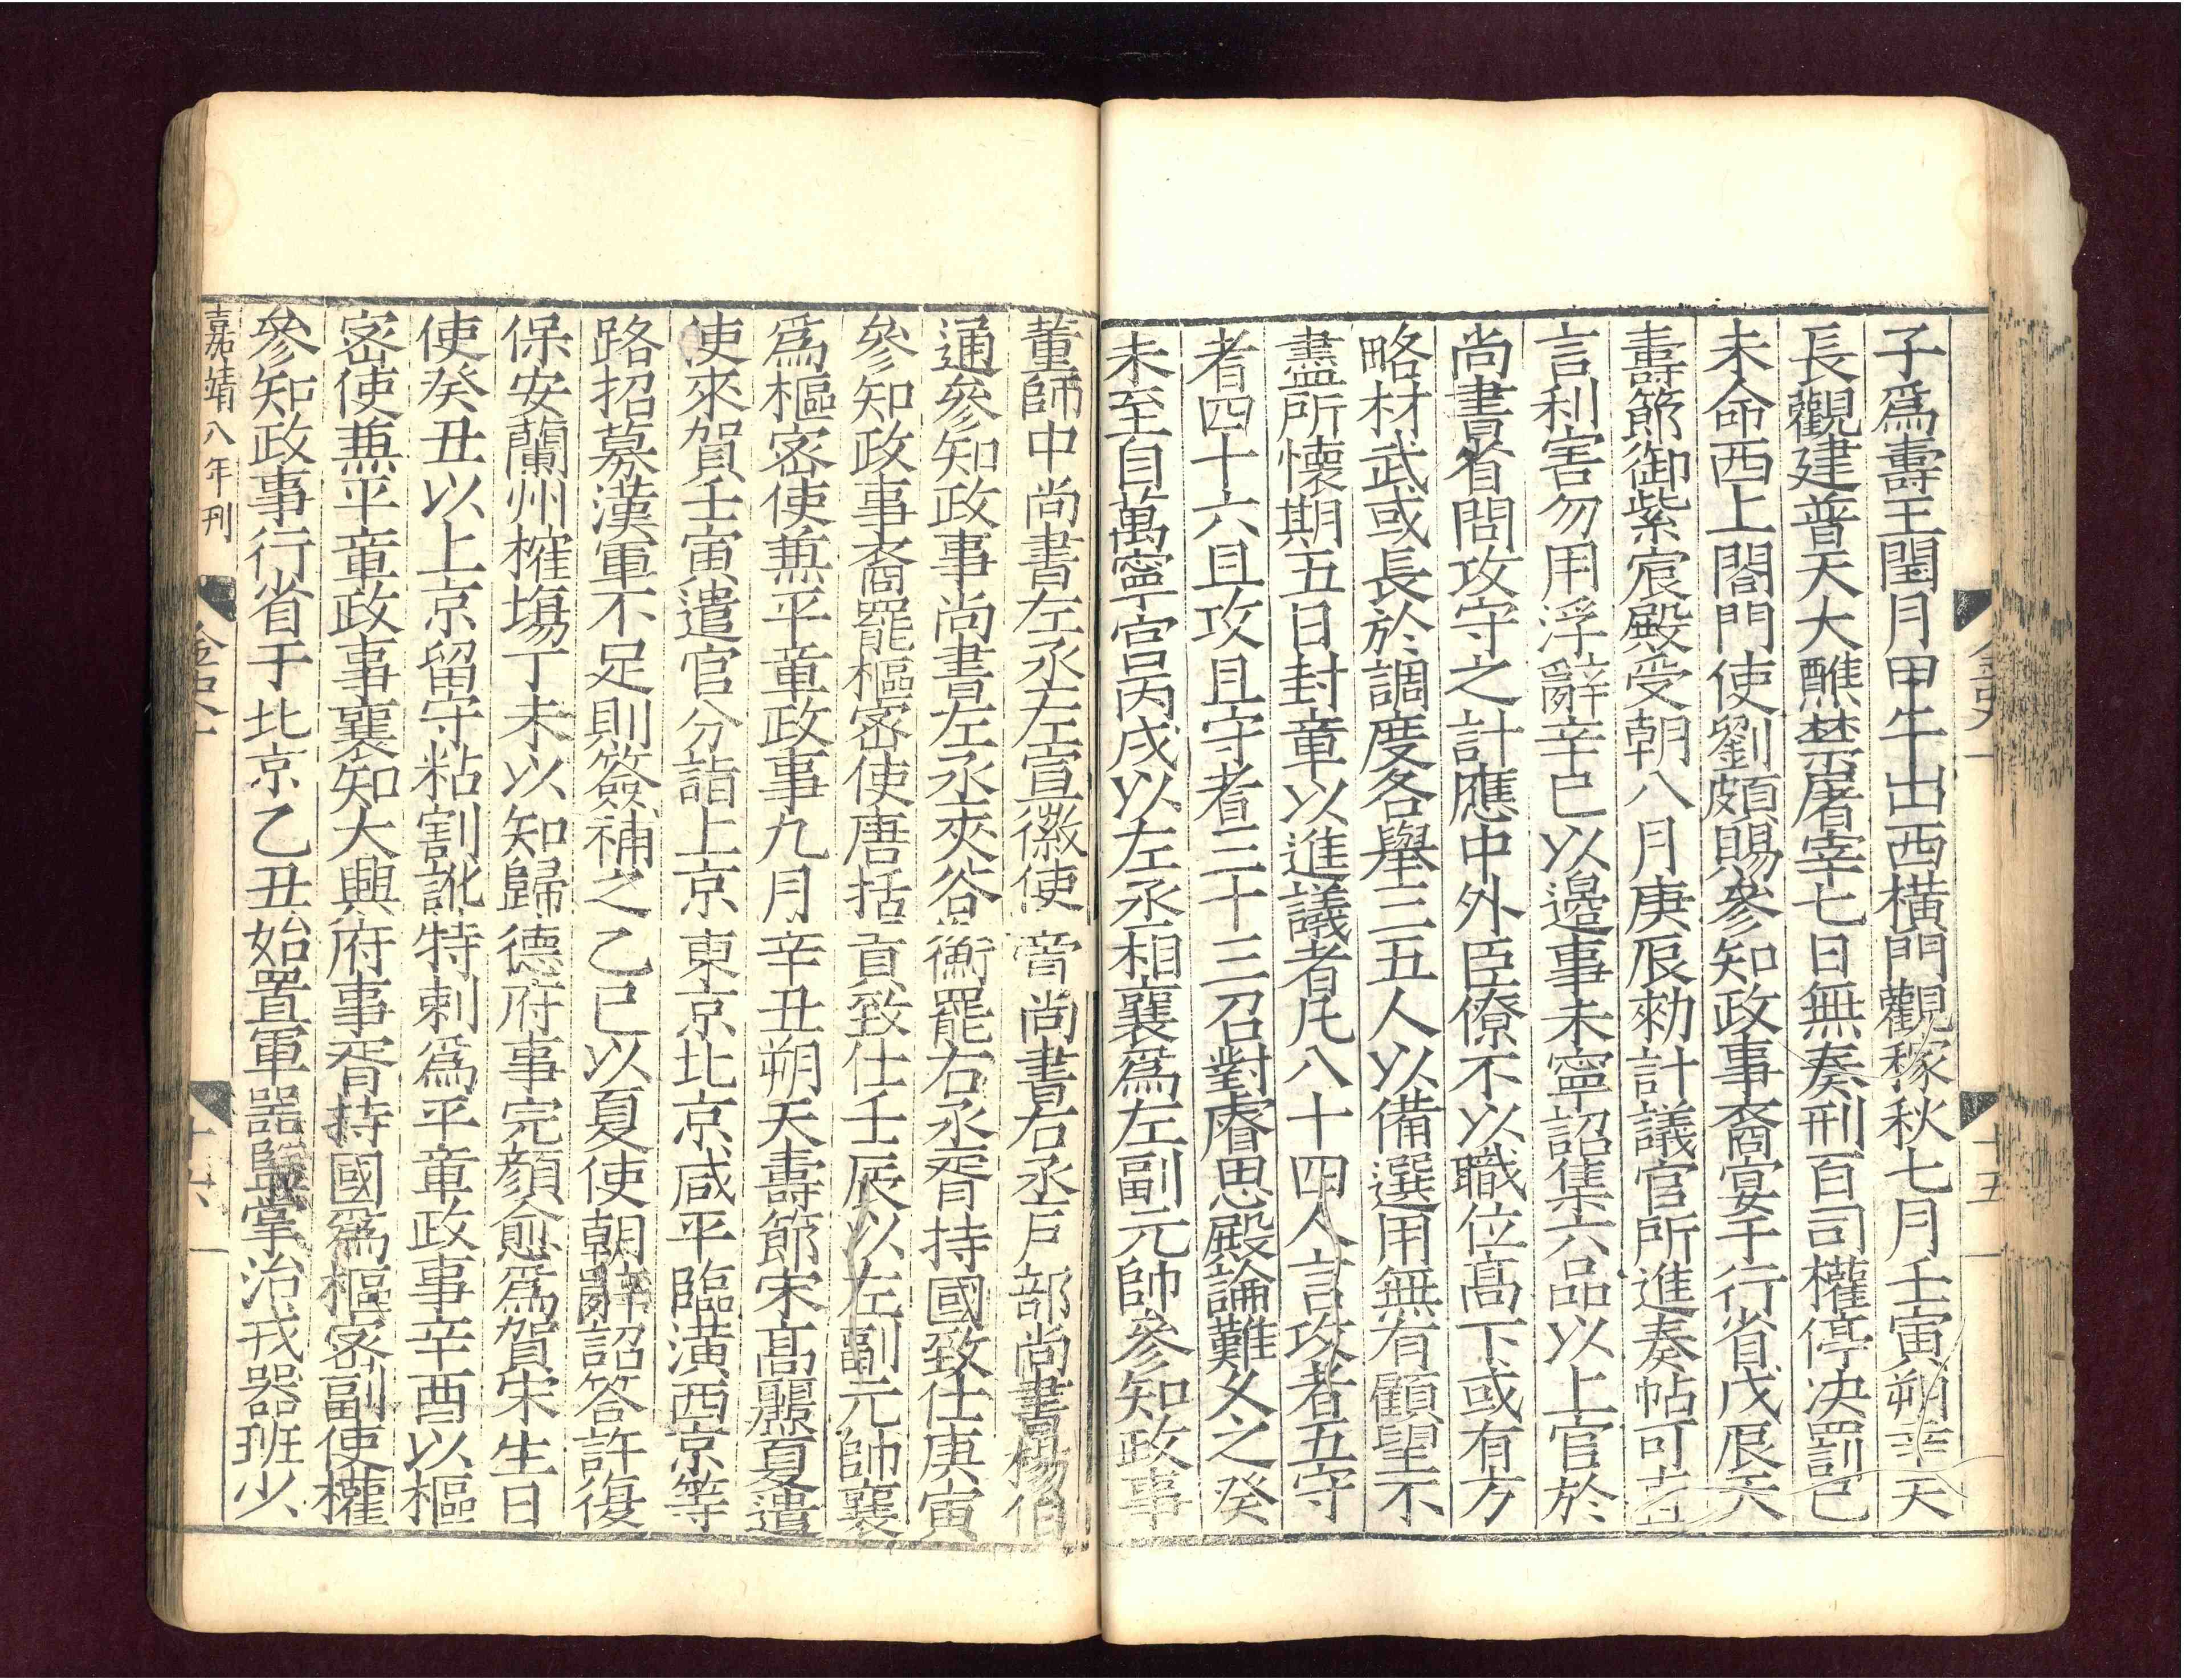 子爲壽王閏月甲午出西橫門觀稼秋七月壬寅朔幸天
長觀建普天大醮禁屠宰七日無奏刑百司權停決罰己
未命西上閤門使劉頗賜參知政事裔宴于行省戊辰天
壽節御紫宸殿受朝八月庚辰勑計議官所進奏帖可直
言利害勿用浮辭辛巳以邊事未寧詔集六品以上官於
尚書省問攻守之計應中外臣僚不以職位高下或有方
略材武或長於調度各舉三五人以備選用無有顧望不
盡所懷期五日封章以進議者凡八十四人言攻者五守
者四十六且攻且守者三十三召對睿思殿論難久之癸
未至自萬寧宮丙戌以左丞相襄爲左副元帥參知政事
金史十一
十五
董師中尚書左丞左宣徽使膏尚書右丞戶部尚書楊伯
通參知政事尚書左丞夾谷衡罷右丞胥持國致仕庚寅
參知政事裔罷樞密使唐括貢致仕壬辰以左副元帥襄
爲樞密使兼平章政事九月辛丑朔天壽節宋高麗夏遣
使來賀壬寅遣官分詣上京東京北京咸平臨潢西京等
路招募漢軍不足則簽補之乙巳以夏使朝辭詔答許復
保安蘭州榷場丁未以知歸德府事完顏愈爲賀宋生日
使癸丑以上京留守粘割訛特剌爲平章政事辛酉以樞
密使兼平章政事襄知大興府事胥持國爲樞密副使權
參知政事行省于北京乙丑始置軍器監掌治戎器班少
嘉靖八年刊
金史十一
十六